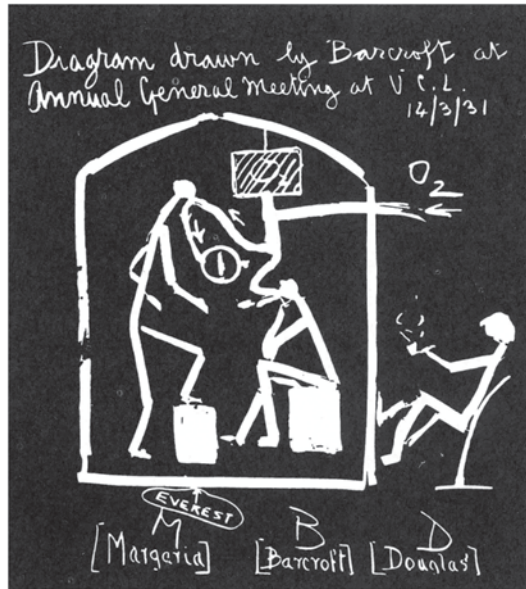 Diagram drawn by Barcroft at
Annual General Meeting at U.C.L.
14/3/31
O2
EVEREST
M B D
[Margaria] [Barcroft] [Douglas]